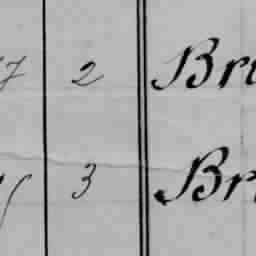 7 2 Br
3 Br